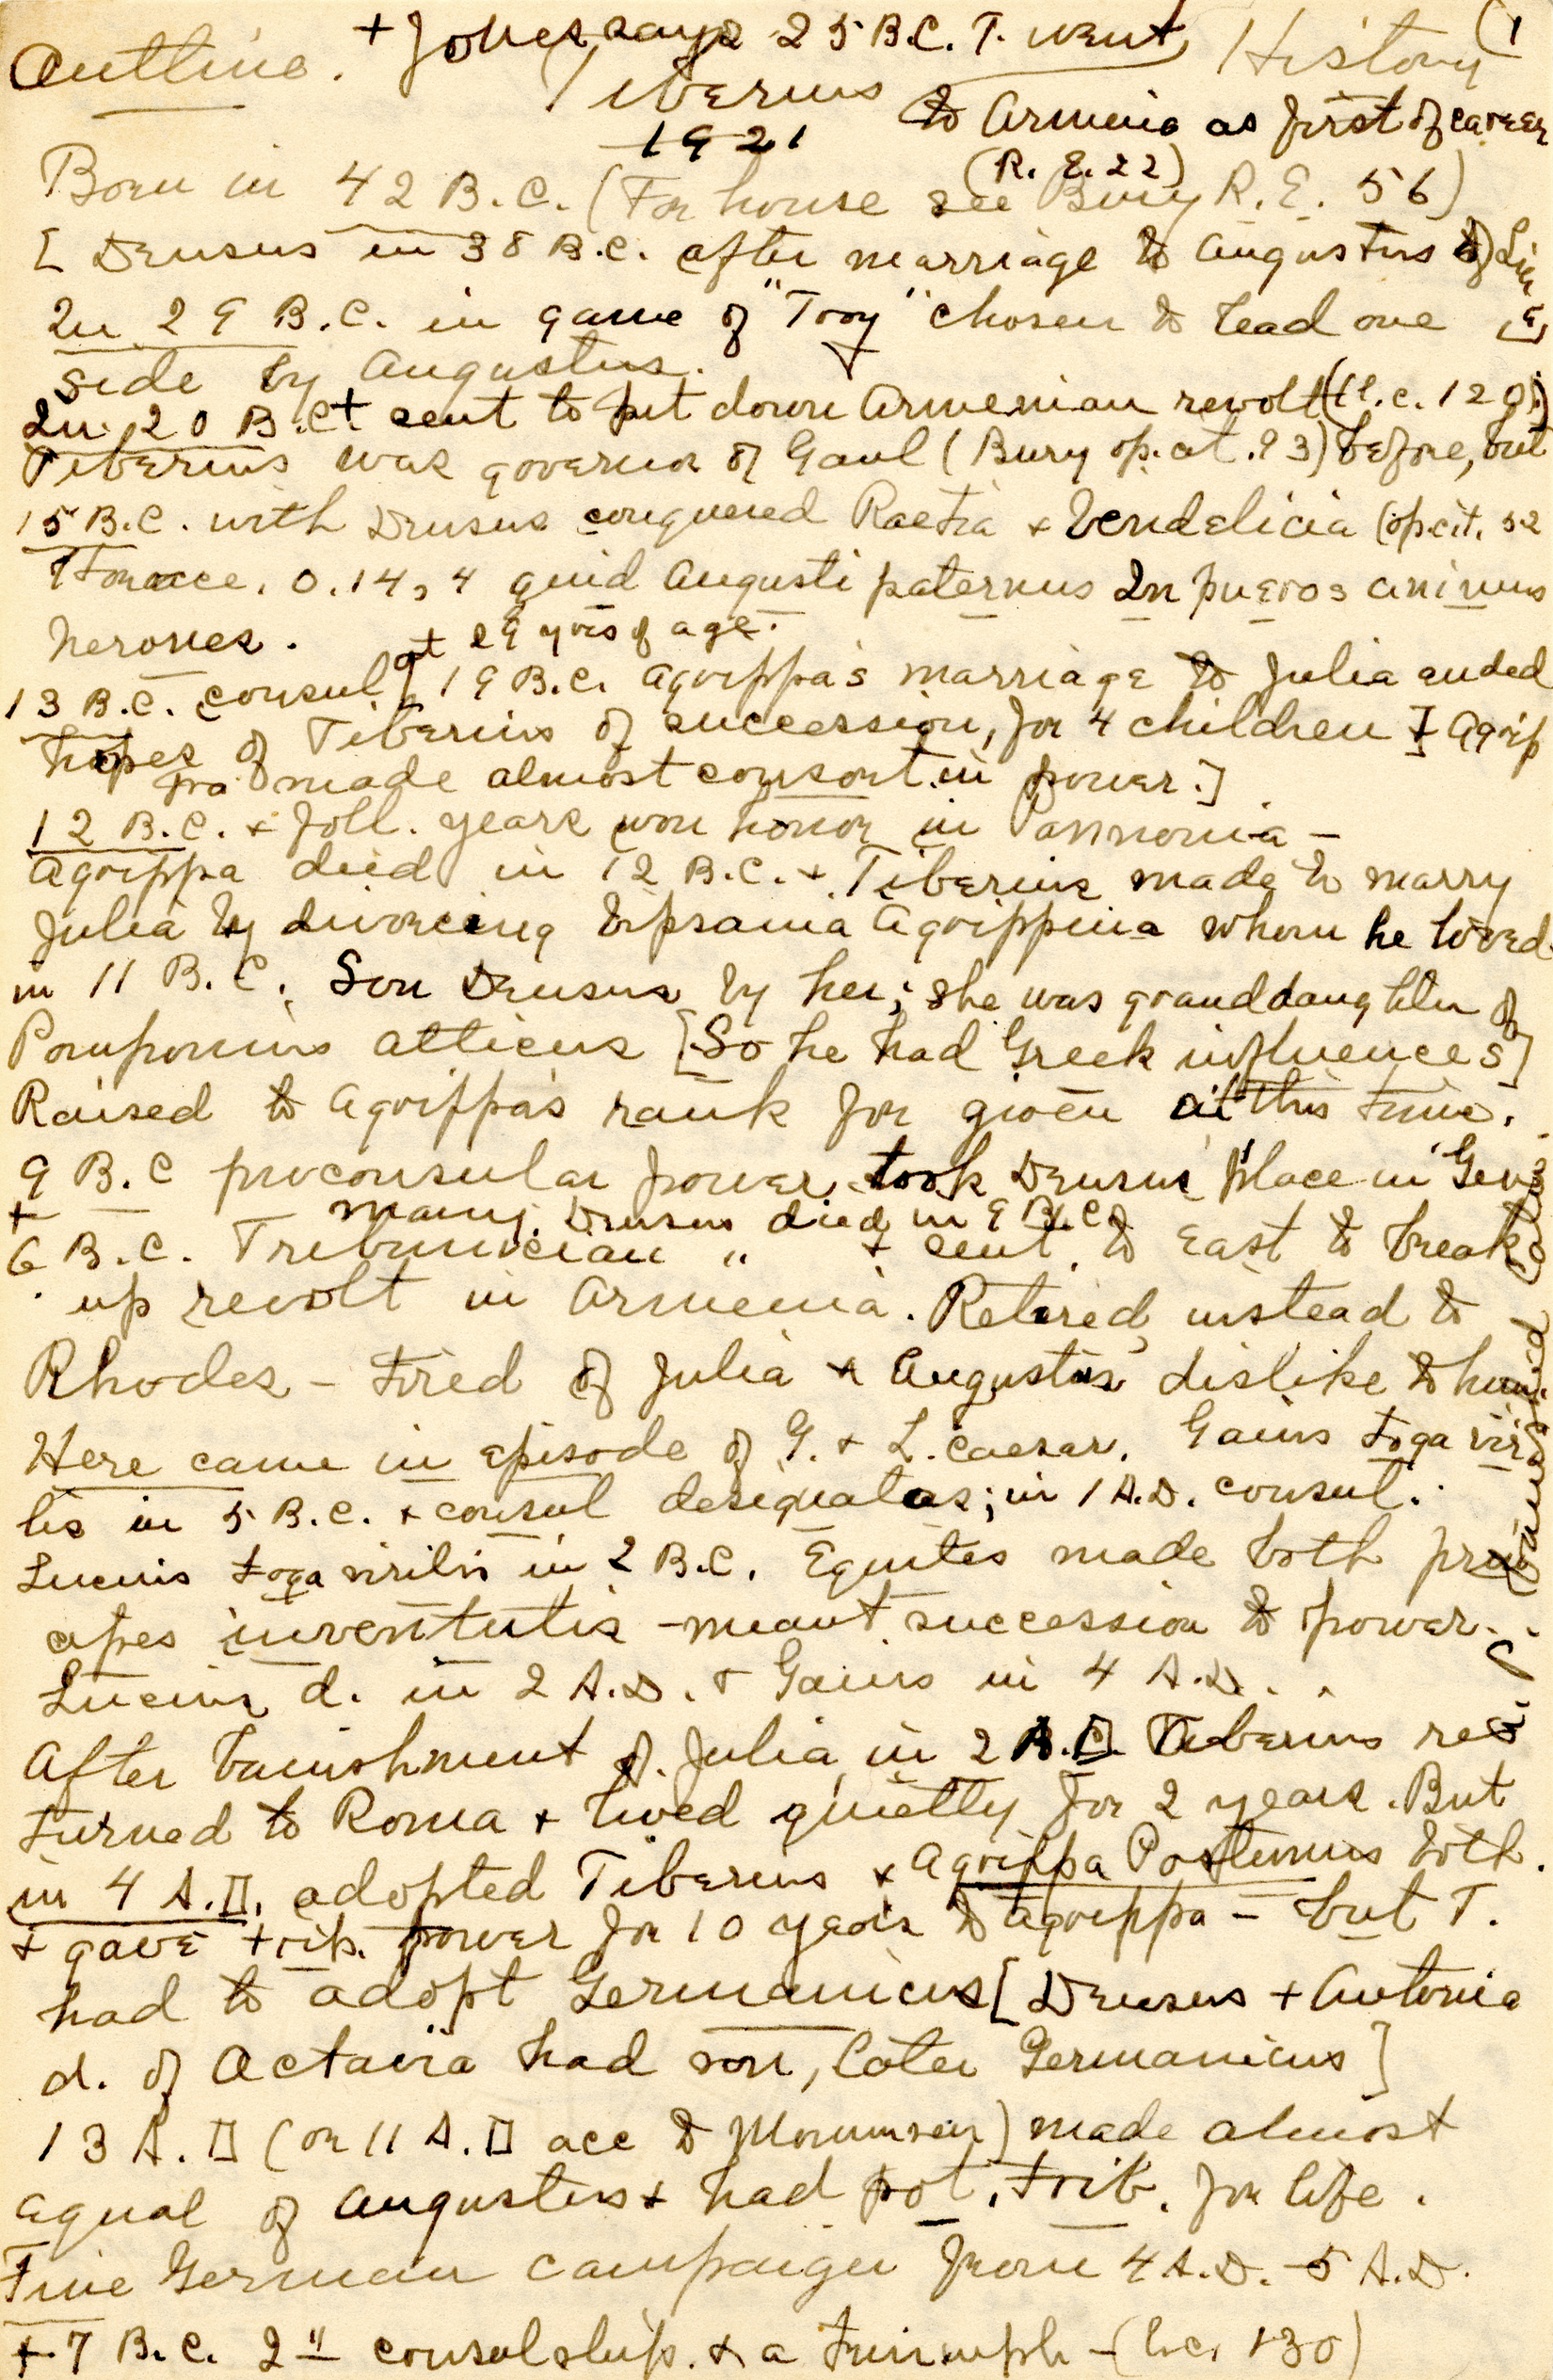 Outline. + Jones says 25 B.C. T. went History (1
Tiberius to Armenia as first of career
1921 (R. E. 22)
Born in 42 B.C. (For house see Bury R. E. 56)
[ Drusus in 38 B.C. after marriage to Augustus of Livia]
In 29 B.C. in game of "Troy" chosen to lead one
side by Augustus.
In 20 B.C.+ sent to put down Armenian revolt (l.c. 120)
Tiberius was governor of Gaul (Bury op. cit. 93) before, but
15 B.C. with Drusus conquered Raetia + Vendelicia (op. cit. 52
Horace, O. 14, 4 quid Augusti paternus In pueros animus
nerones.
at 29 yrs of age.
13 B.C. consul [ 19 B.C. Agrippa's marriage to Julia ended
hopes of Tiberius of succession, for 4 children I Agrip
pa made almost consort in power.]
12 B.C. + foll. years won honor in Pannonia –
Agrippa died in 12 B.C. + Tiberius made to marry
Julia by divorcing Vipsania Agrippina whom he loved.
in 11 B.C. Son Drusus by her; she was granddaughter of
Pomponius Atticus [So he had Greek influences]
Raised to Agrippa's rank for given at this time.
9 B.C proconsular power took Drusus' place in Ger
many. Drusus died in 9 B.C.
+ 6 B.C. Tribunician " + sent to East to break
up revolt in Armenia. Retired instead to
Rhodes – Tired of Julia + Augustus' dislike to him.
Here came in episode of G. + L. Caesar. Gaius toga viri
lis in 5 B.C. + consul designatas; in 1 A.D. consul.
Lucius toga virilis in 2 B.C. Equites made both prin
cipes iuventutis – meant succession to power.
Lucius d. in 2 A.D. + Gaius in 4 A.D.
After banishment of Julia in 2 B.C. Tiberius re
turned to Roma + lived quietly for 2 years. But
in 4 A.D. adopted Tiberius + Agrippa Postumus both.
+ gave trib. power for 10 years to Agrippa – but T.
had to adopt Germanicus [Drusus + Antonia
d. of Octavia had son, later Germanicus]
13 A.D (or 11 A.D acc to Mommsen) made almost
equal of Augustus + had pot. trib. for life.
Fine German campaign from 4 A.D. – 5 A.D.
+ 7 B.C. 2" consulship. + a triumph – (l.c. 130)